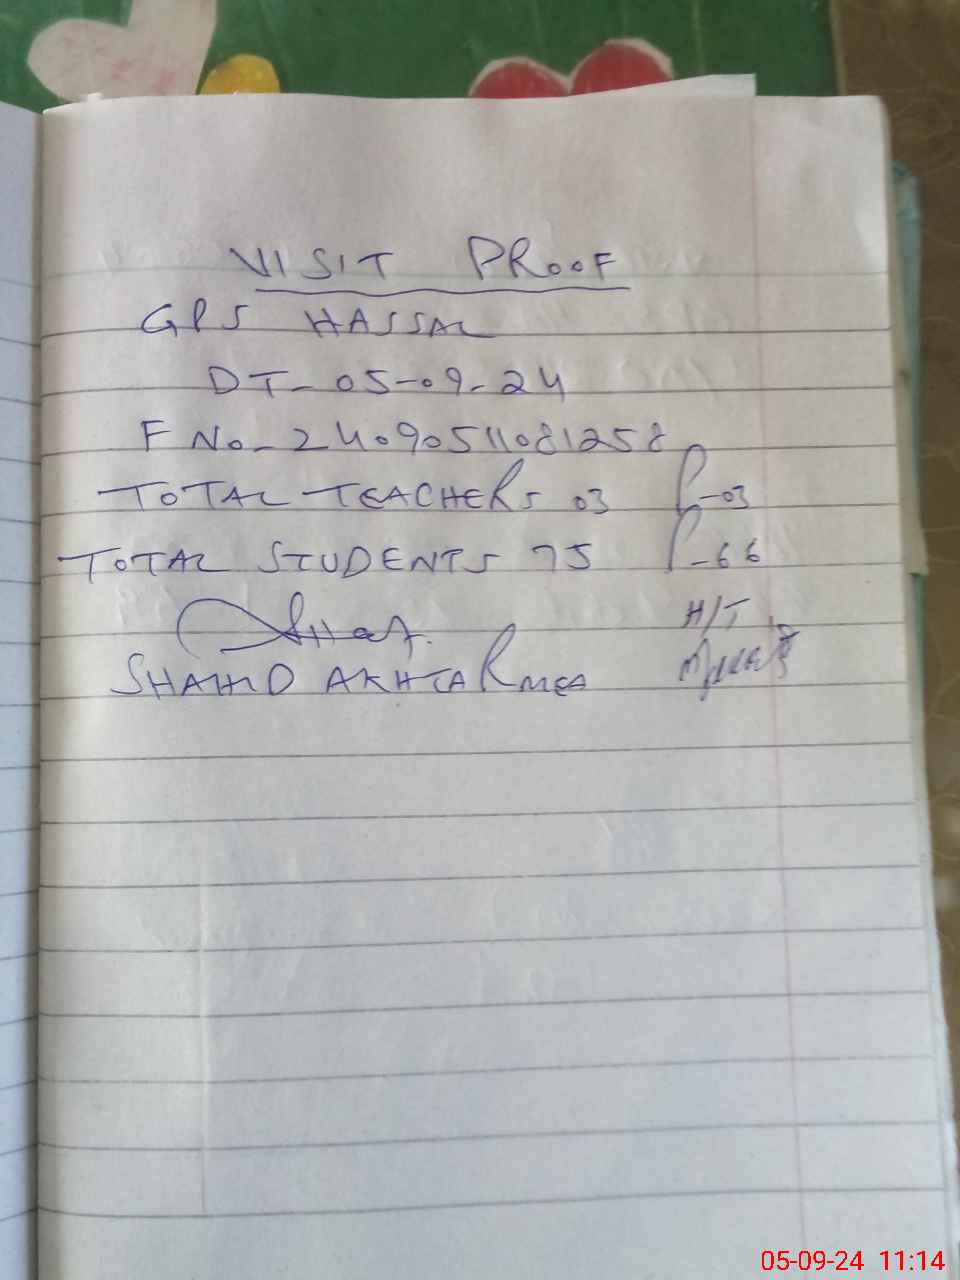 VISIT PROOF
GPS HASSAL
DT- 05-09-24
F No- 2409051108 1258
TOTAL TEACHERS 03 P-03
TOTAL STUDENTS 75 P-66
H/T
SHAHID AKHTAR MEA
05-09-24 11:14